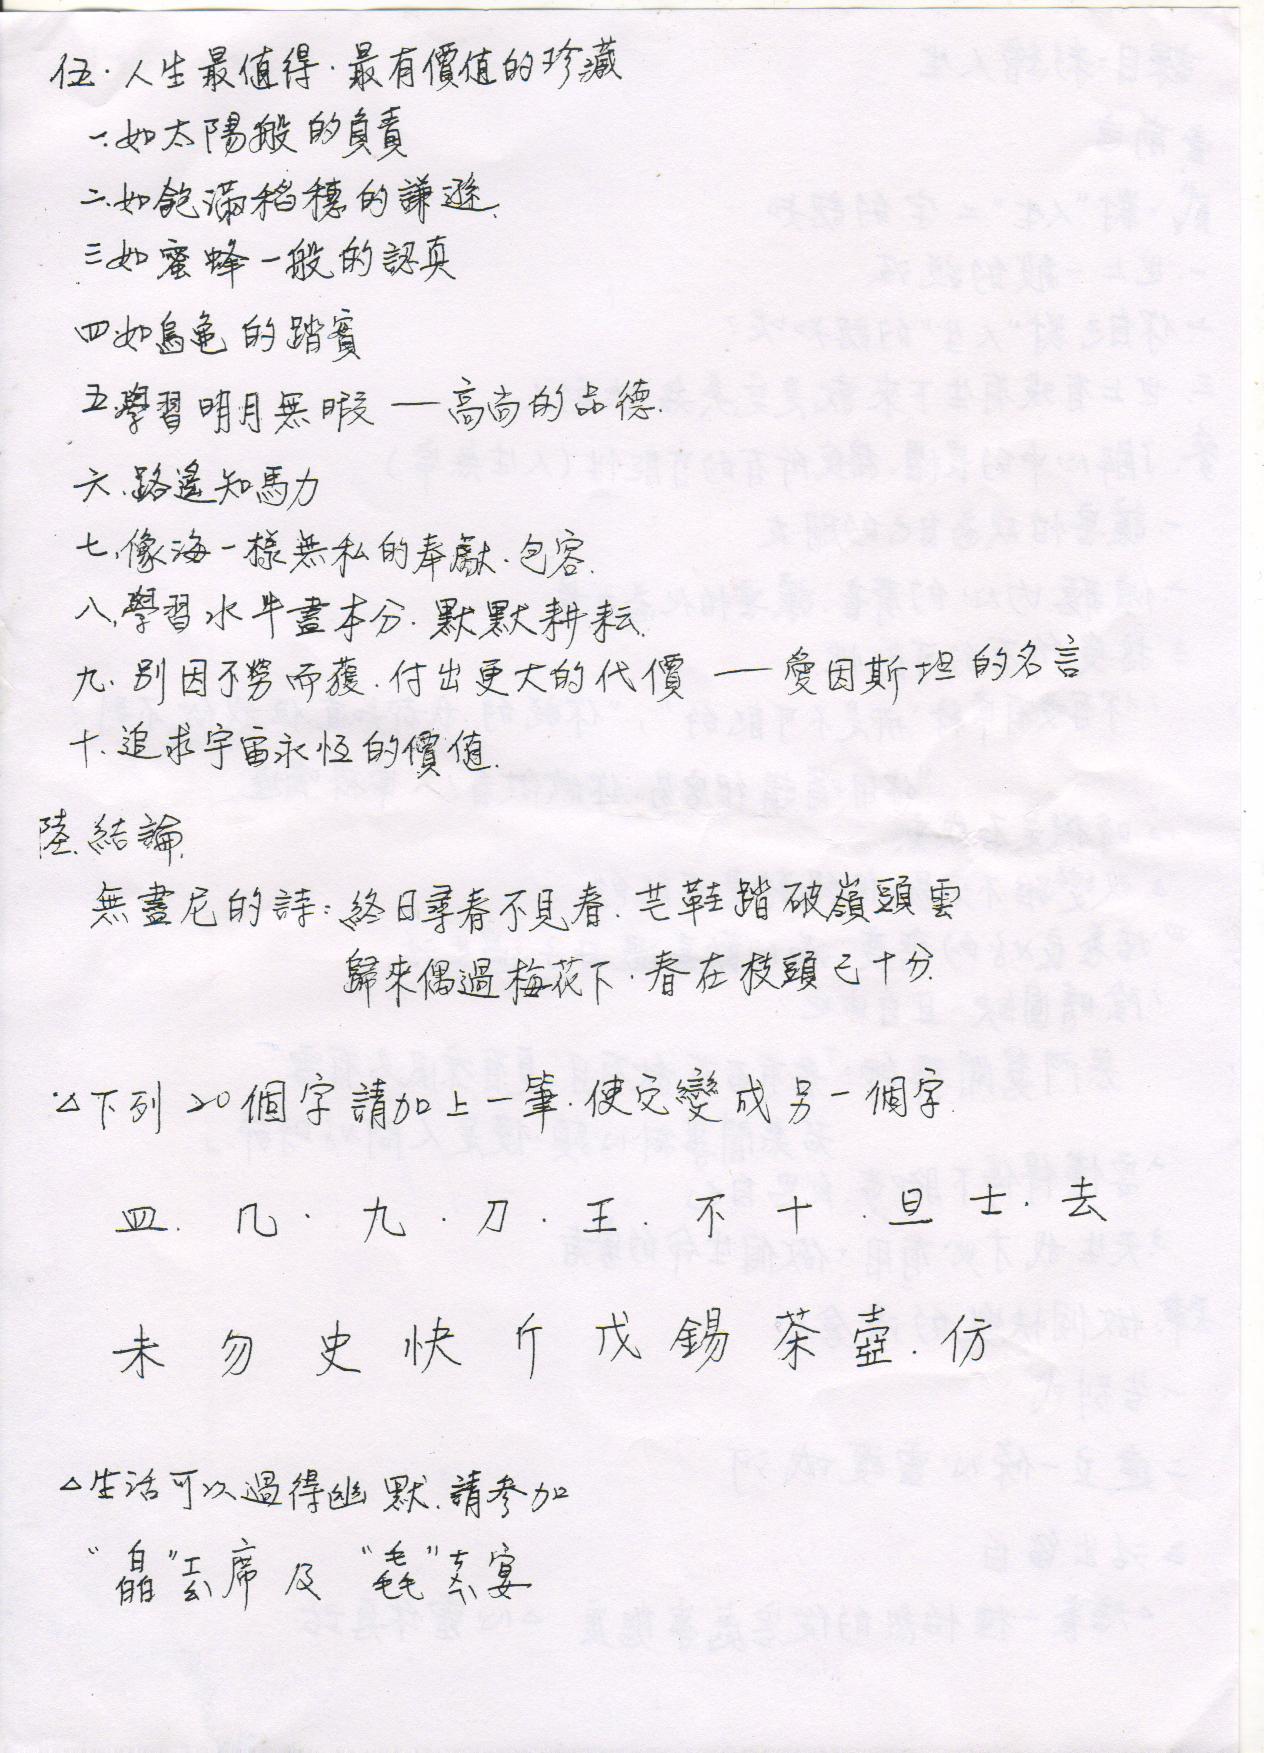 伍．人生最值得．最有價值的珍藏
一、如太陽般的負責
二、如飽滿稻穗的謙遜．
三如蜜蜂一般的認真
四如烏龜的踏實
五、學習明月無暇——高尚的品德．
六．路遙知馬力
七、像海一樣無私的奉獻．包容．
八、學習水牛盡本分．默默耕耘．
九．別因不勞而獲．付出更大的代價——愛因斯坦的名言
十．追求宇宙永恆的價值．
陸．結論．
無盡尼的詩：終日尋春不見春．芒鞋踏破嶺頭雲
歸來偶過梅花下．春在枝頭已十分．
△下列20個字請加上一筆．使它變成另一個字．
皿．几．九．刀．王．不十．旦士．去
未勿史快斤戊錫茶壺．仿
△生活可以過得幽默．請參加
“皛”席及“毳”宴